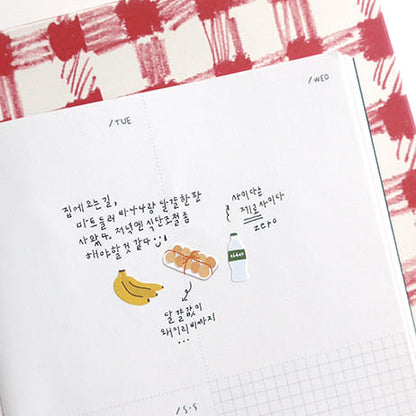 /TUE
/WED
집에 오는길,
마트들러 바나나랑 달걀한판
사왔다. 저녁엔 식단조절좀
해야할것 같다
사이다는
제로사이다
zero
cider
달걀값이
왜이리비싸지
...
/S.S